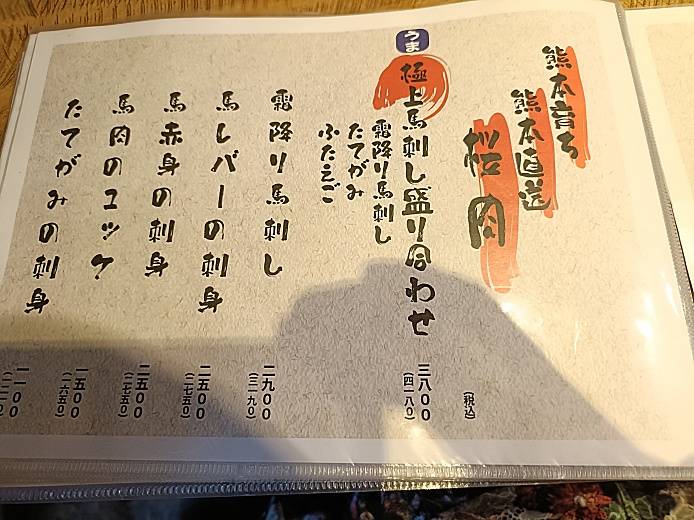 熊本育ち
熊本直送
桜肉
(税込)
うま
極上馬刺し盛り合わせ
三八〇〇
(四一八〇)
霜降り馬刺し
たてがみ
ふたえご
霜降り馬刺し
二九〇〇
(三一九〇)
馬レバーの刺身
二五〇〇
(二七五〇)
馬赤身の刺身
二五〇〇
(二七五〇)
馬肉のユッケ
一五〇〇
(一六五〇)
たてがみの刺身